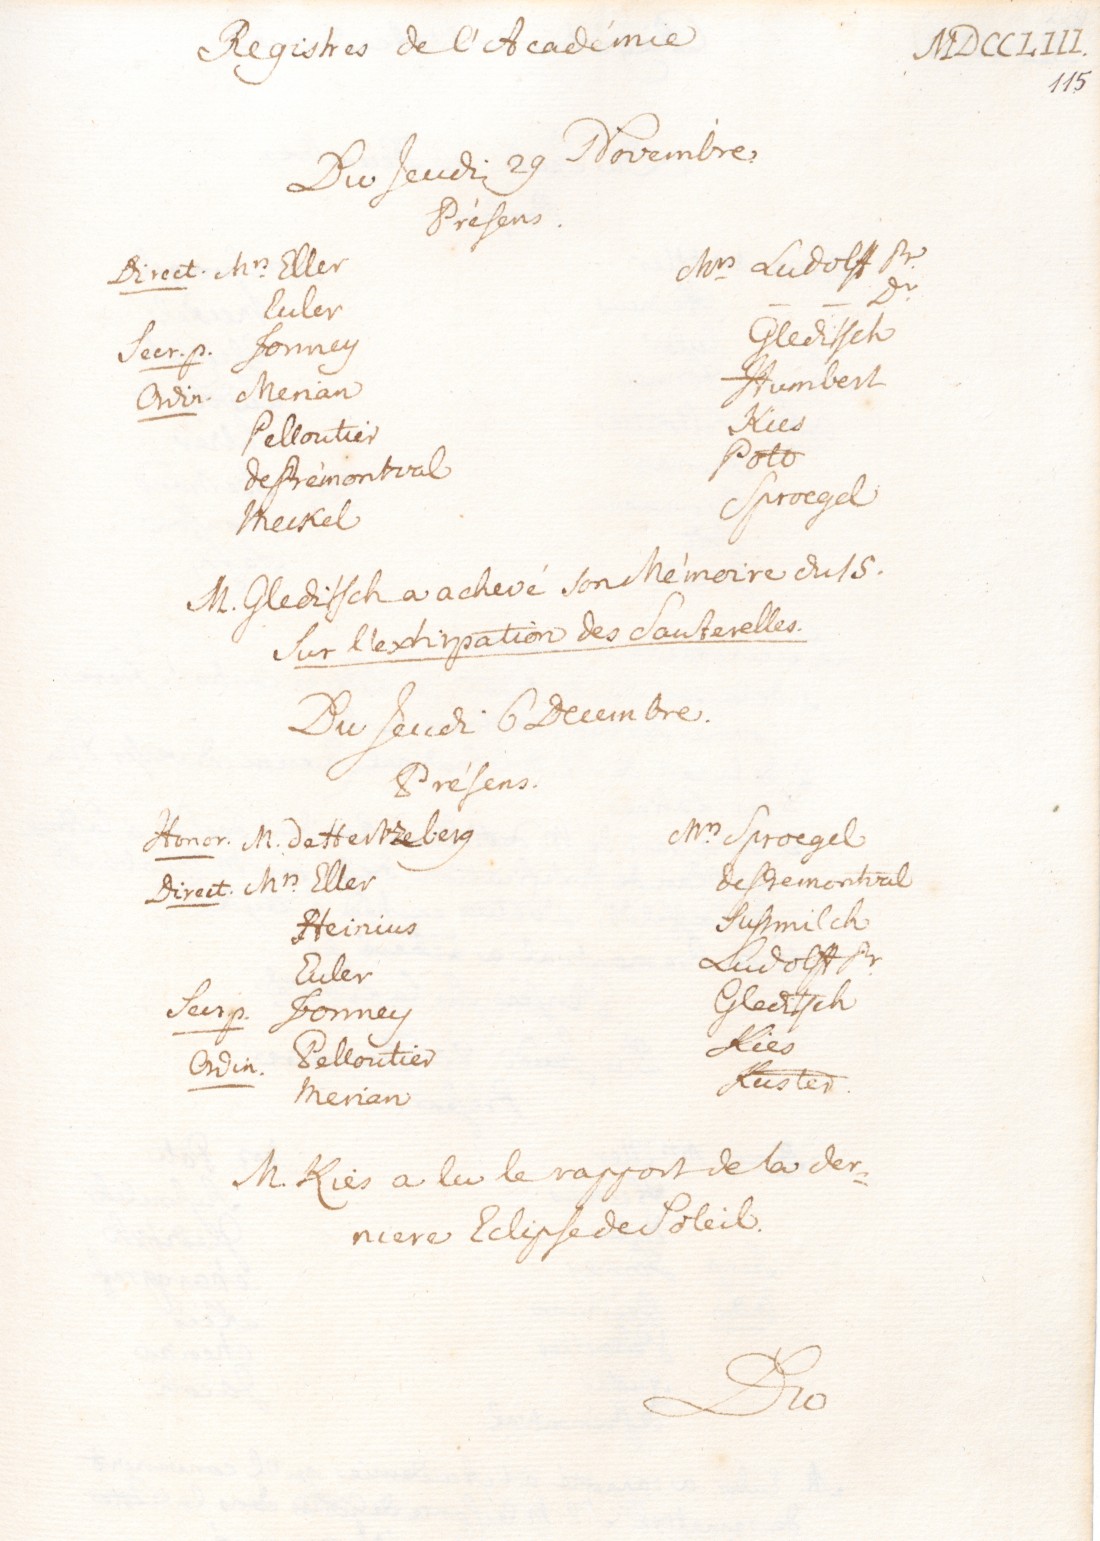 Registres de l'Académie
MDCCLIII.
115
Du Jeudi 29 Novembre.
Présens.
Direct. Mrs Eller
Euler
Secr. p. Formey
Ordin. Merian
Pelloutier
de Prémontval
Meckel
Mrs Ludolff Pr.
— — Dr.
Gleditsch
Humbert
Kies
Pott
Sproegel
M. Gleditsch a achevé son Mémoire du 15.
Sur l'extirpation des Sauterelles.
Du Jeudi 6 Decembre.
Présens.
Honor. M. de Hertzeberg
Direct. Mrs Eller
Heinius
Euler
Secr. p. Formey
Ordin. Pelloutier
Merian
Mrs Sproegel
de Premontval
Susmilch
Ludolff Pr
Gleditsch
Kies
Kuster.
M. Kies a lu le rapport de la der=
niere Eclipse de Soleil.
Du